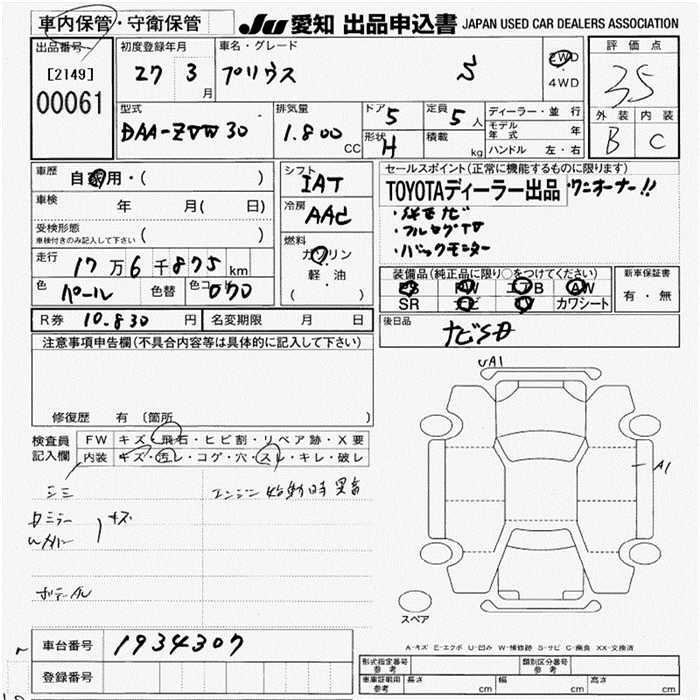 車内保管・守衛保管 JU 愛知 出品申込書 JAPAN USED CAR DEALERS ASSOCIATION
出品番号 初度登録年月 車名・グレード 評価点
[2149] 27 3月 プリウス S 2WD 4WD 35
00061
型式 排気量 ドア 5 定員 5人 ディーラー・並行 外装 内装
DAA-ZVW30 1.800 CC 形状 H 積載 kg モデル年式 年 B C
ハンドル 左・右
車歴 自家用・( ) シフト IAT セールスポイント(正常に機能するものに限ります)
車検 年 月( 日) 冷房 AAC TOYOTAディーラー出品 ワンオーナー!!
・純正ナビ
受検形態 ( ) ・フルセグTV
車検付きのみ記入して下さい
燃料 ガソリン ・バックモニター
走行 17万6千875km 軽・油
( )
装備品(純正品に限り○をつけてください) 新車保証書
色 パール 色替 色コード 070 PS PW エアB AW 有・無
SR ナビ TV カワシート
R券 10.830円 名変期限 月 日 後日品 ナビSD
注意事項申告欄(不具合内容等は具体的に記入して下さい)
修復歴 有 (箇所
UA1
A1
検査員記入欄 FW キズ・飛石・ヒビ割・リペア跡・X要
内装 キズ・汚レ・コゲ・穴・スレ・キレ・破レ
エンジン始動時異音
キズ
スペア
A-キズ E-エクボ U-凹み W-補修跡 S-サビ C-腐食 XX-交換済
車台番号 1934307
登録番号
形式指定番号 参考 類別区分番号 参考
車庫証明用 参考 長さ cm 幅 cm 高さ cm